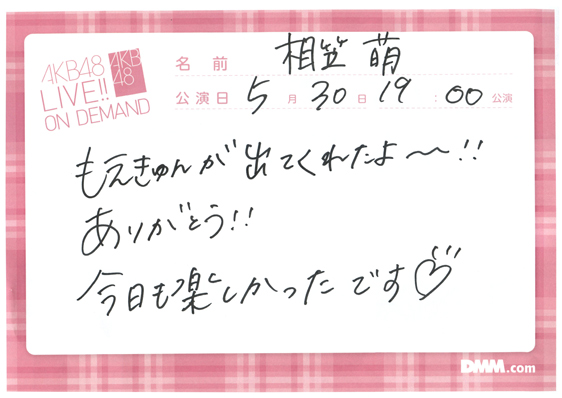 AKB48
LIVE!!
ON DEMAND
AKB
48
名前 相笠 萌
公演日 5月30日 19:00公演
もえきゅんが出てくれたよ〜!!
ありがとう!!
今日も楽しかったです♡
DMM.com